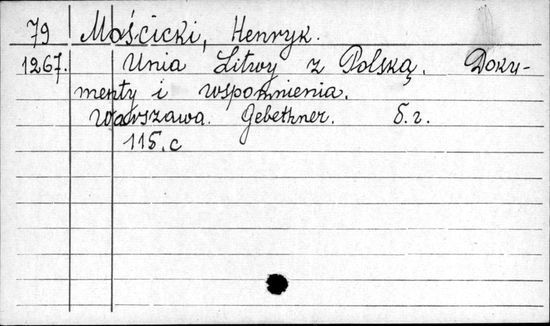 79 Mościcki, Henryk.
1267. Unia Litwy z Polską. Doku-
menty i wspomnienia.
Warszawa. Gebethner. S. r.
115. c